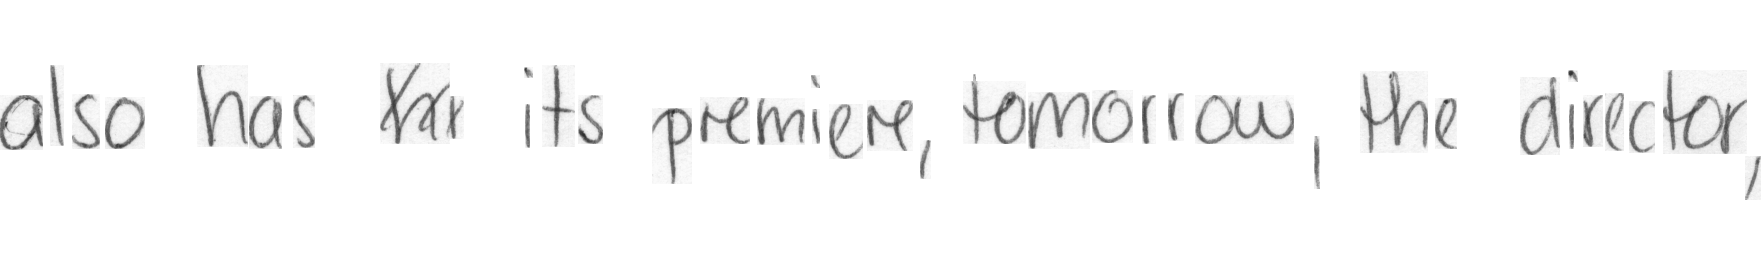 also has its premiere, tomorrow, the director,